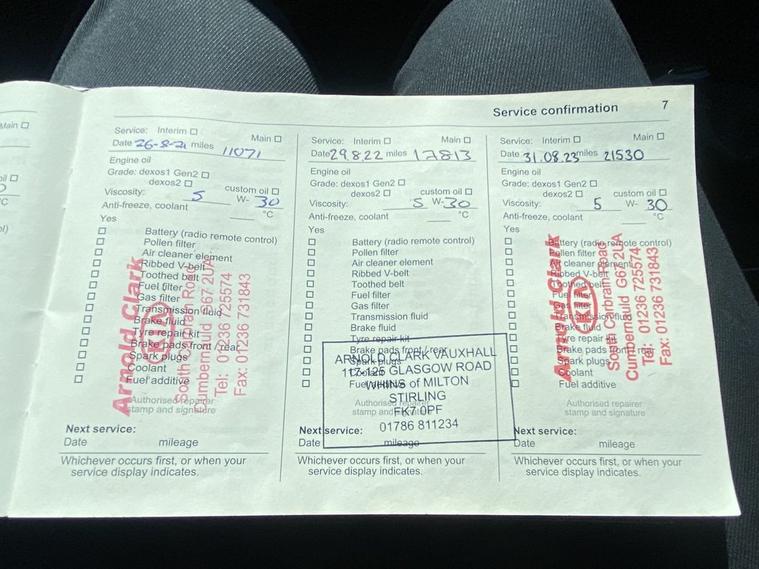 Service confirmation 7
Main
Service: Interim Main
Date 26-8-21 miles 11071
Engine oil
Grade: dexos1 Gen2
dexos2 custom oil
Viscosity: 5 W- 30
Anti-freeze, coolant °C
Yes
Battery (radio remote control)
Pollen filter
Air cleaner element
Ribbed V-belt
Toothed belt
Fuel filter
Gas filter
Transmission fluid
Brake fluid
Tyre repair kit
Brake pads front / rear
Spark plugs
Coolant
Fuel additive
Authorised repairer
stamp and signature
Arnold Clark
KIA
South Carbrain Road
Cumbernauld G67 2UA
Tel: 01236 725574
Fax: 01236 731843
Next service:
Date mileage
Whichever occurs first, or when your
service display indicates.
Service: Interim Main
Date 29.8.22 miles 17813
Engine oil
Grade: dexos1 Gen2
dexos2 custom oil
Viscosity: 5 W- 30
Anti-freeze, coolant °C
Yes
Battery (radio remote control)
Pollen filter
Air cleaner element
Ribbed V-belt
Toothed belt
Fuel filter
Gas filter
Transmission fluid
Brake fluid
Tyre repair kit
Brake pads front / rear
Spark plugs
Coolant
Fuel additive
Authorised repairer
stamp and signature
ARNOLD CLARK VAUXHALL
117-125 GLASGOW ROAD
WHINS of MILTON
STIRLING
FK7 0PF
01786 811234
Next service:
Date mileage
Whichever occurs first, or when your
service display indicates.
Service: Interim Main
Date 31.08.23 miles 21530
Engine oil
Grade: dexos1 Gen2
dexos2 custom oil
Viscosity: 5 W- 30
Anti-freeze, coolant °C
Yes
Battery (radio remote control)
Pollen filter
Air cleaner element
Ribbed V-belt
Toothed belt
Fuel filter
Gas filter
Transmission fluid
Brake fluid
Tyre repair kit
Brake pads front / rear
Spark plugs
Coolant
Fuel additive
Authorised repairer
stamp and signature
Arnold Clark
KIA
South Carbrain Road
Cumbernauld G67 2UA
Tel: 01236 725574
Fax: 01236 731843
Next service:
Date mileage
Whichever occurs first, or when your
service display indicates.